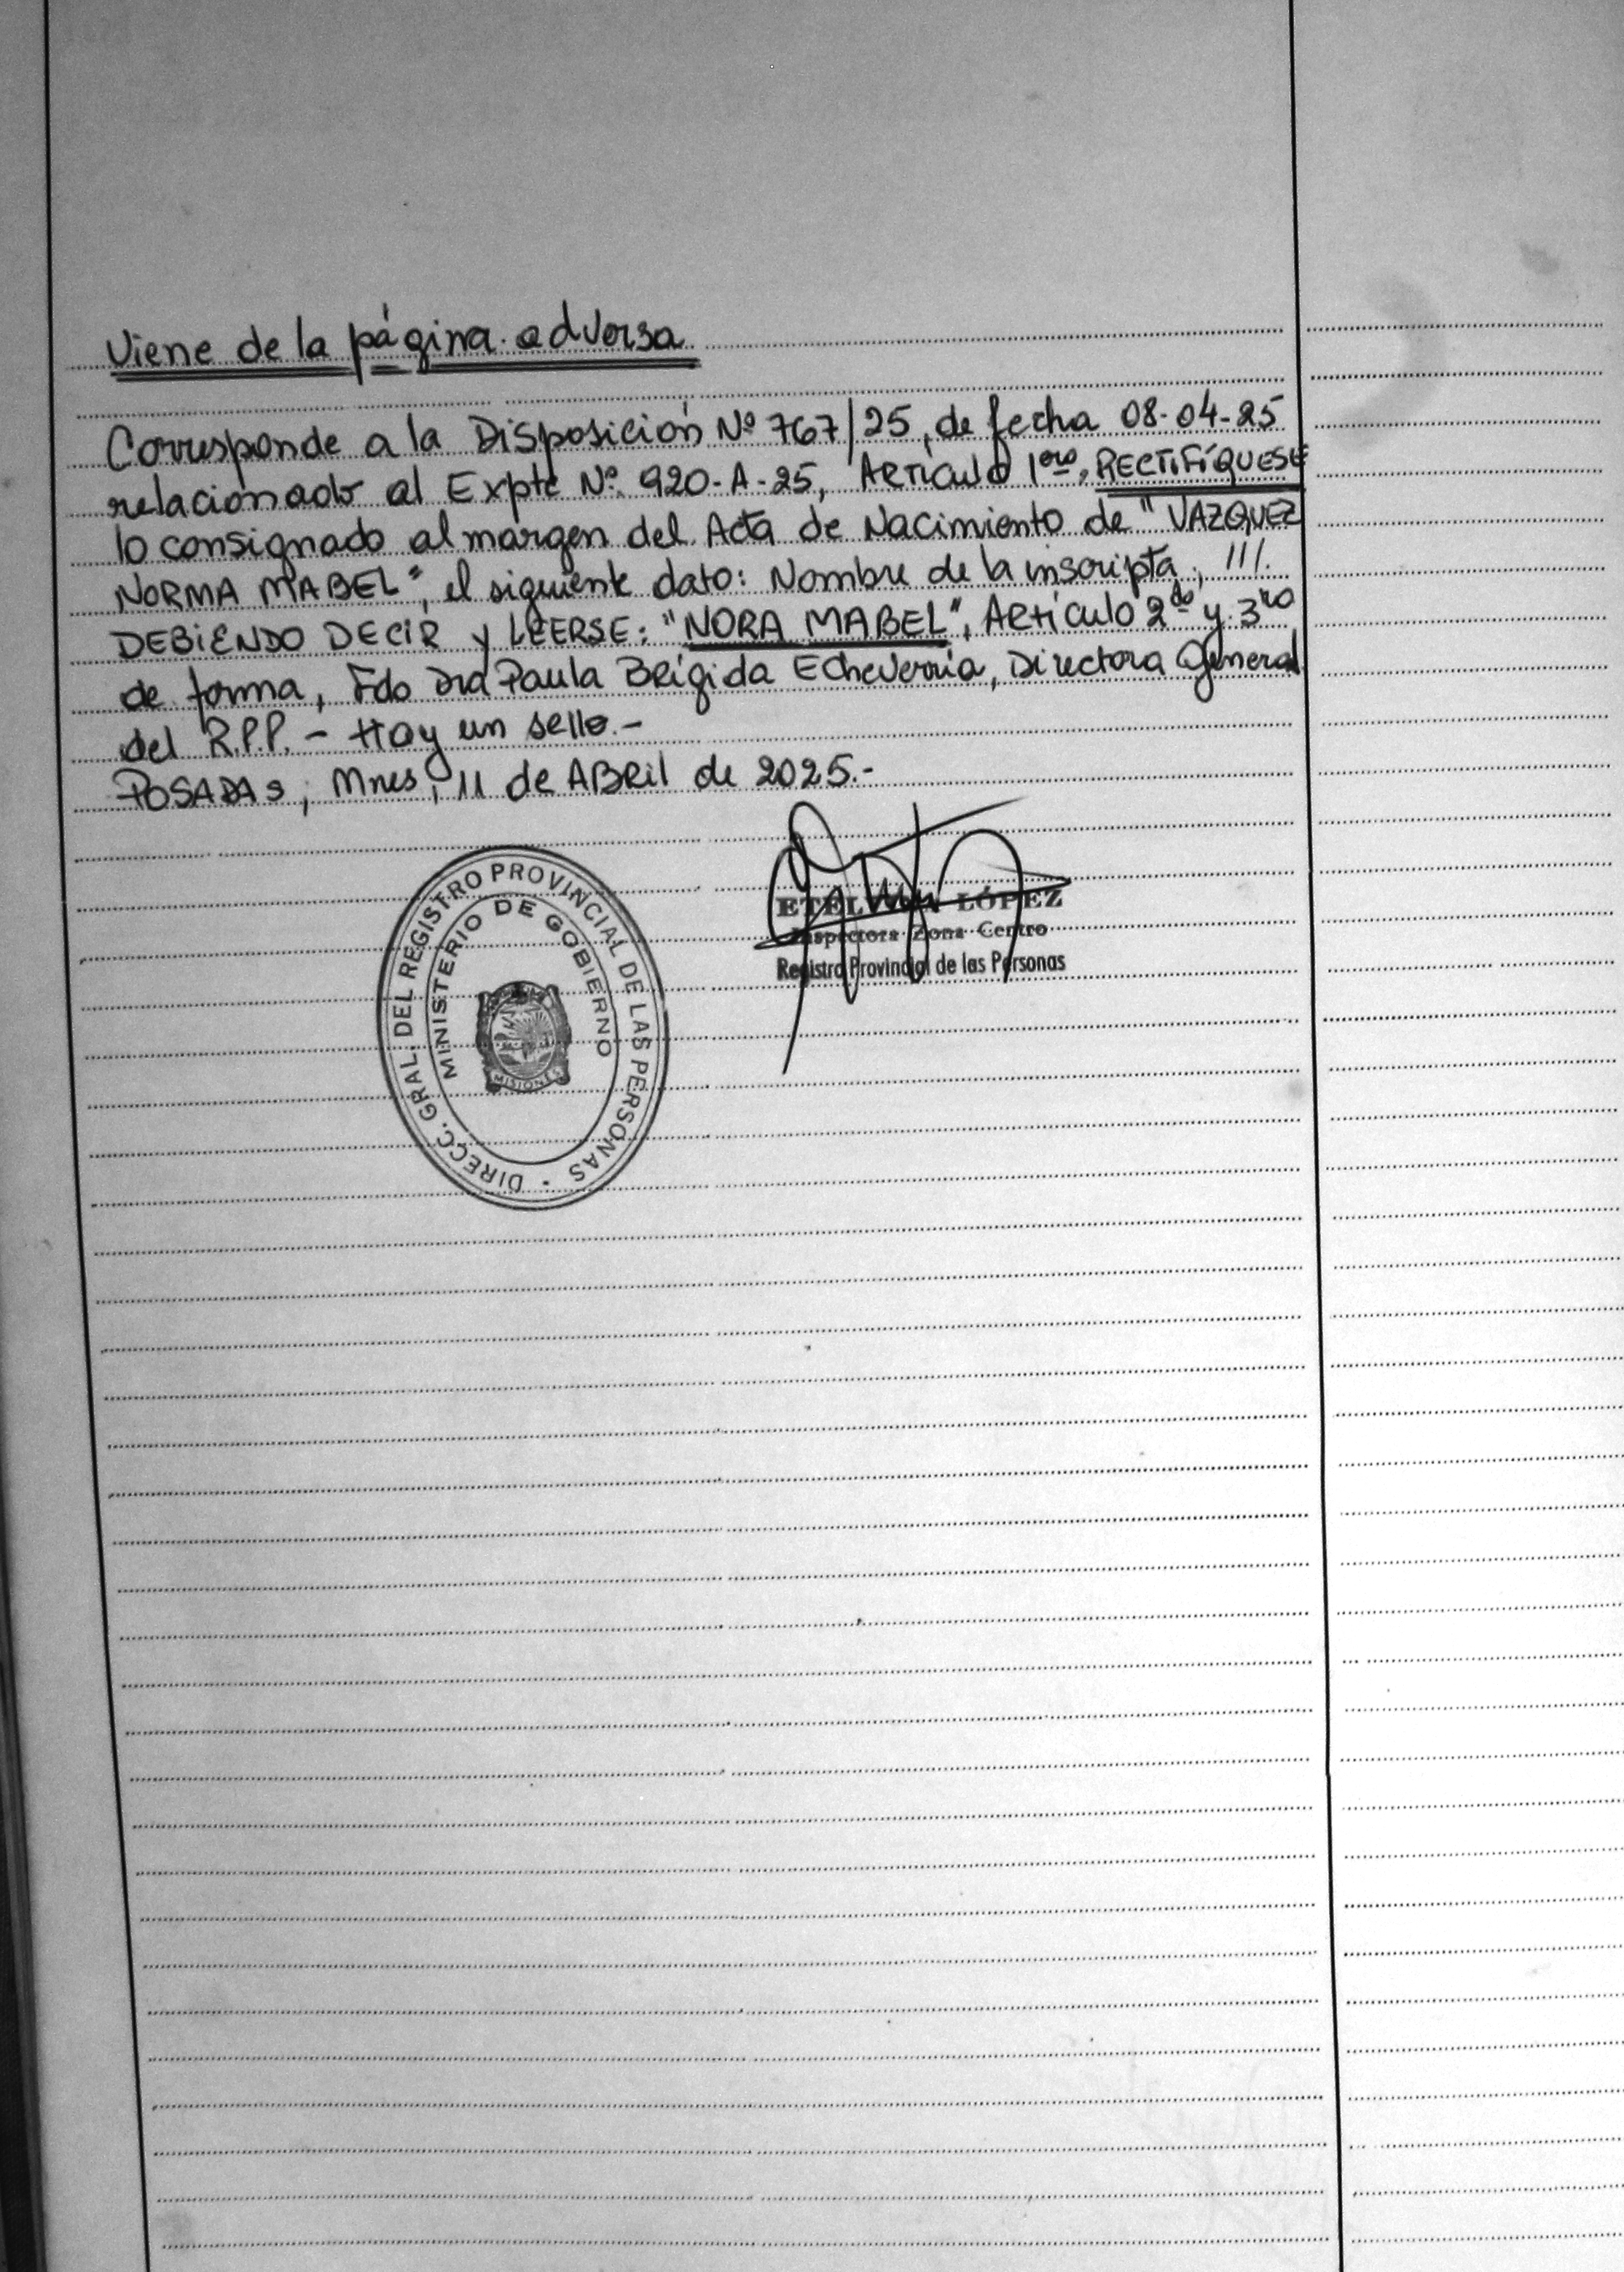 Viene de la página adversa
Corresponde a la Disposición Nº 767/25, de fecha 08-04-25
relacionado al Expte Nº 920-A-25, Artículo 1ero, RECTIFÍQUESE
lo consignado al margen del Acta de Nacimiento de "VAZQUEZ
NORMA MABEL", el siguiente dato: Nombre de la inscripta, ///.
DEBIENDO DECIR y LEERSE: "NORA MABEL", Artículo 2do y 3ro
de forma, Fdo Dra Paula Brígida Echeverría, Directora General
del R.P.P. - Hay un sello.-
POSADAS, Mnes, 11 de ABRil de 2025.-
DIRECC. GRAL. DEL REGISTRO PROVINCIAL DE LAS PERSONAS
MINISTERIO DE GOBIERNO
MISIONES
LÓPEZ
Inspectora Zona Centro
Registro Provincial de las Personas